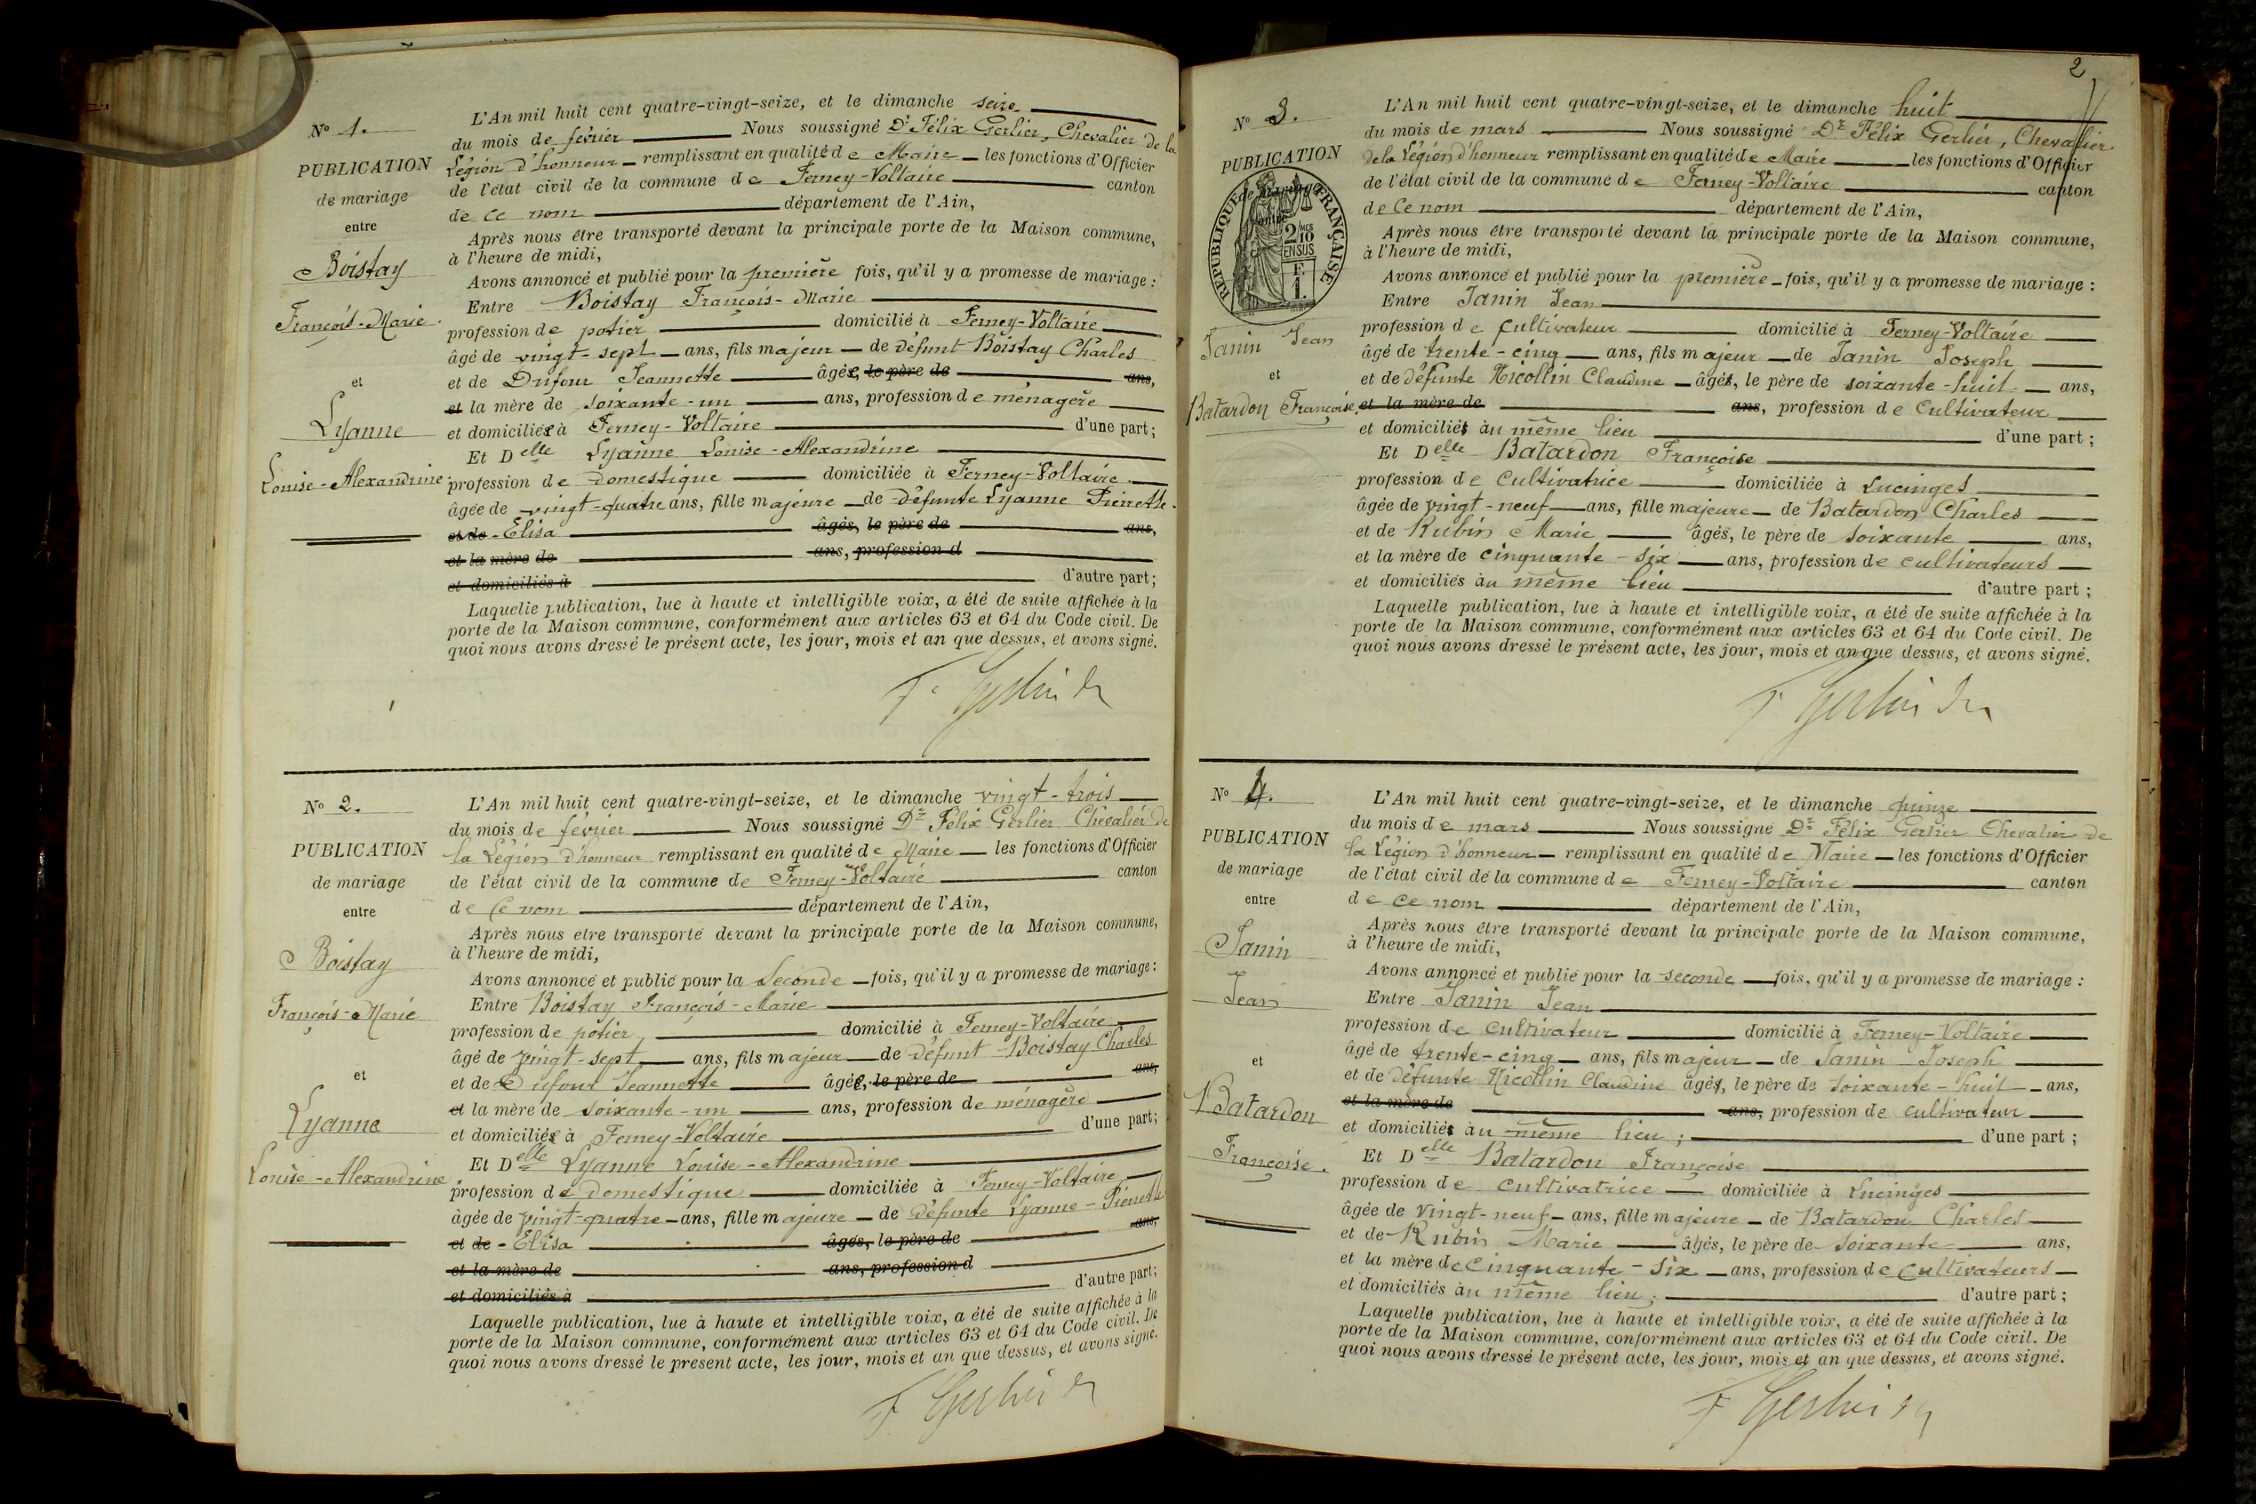 L'An mil huit cent quatre-vingt-seize, et le dimanche seize
N° 1.
du mois de février Nous soussigné Dr Félix Gerlier, Chevalier de la
PUBLICATION
Légion d'honneur remplissant en qualité de Maire les fonctions d'Officier
de mariage
de l'état civil de la commune de Ferney-Voltaire canton
entre
de ce nom département de l'Ain,
Après nous être transporté devant la principale porte de la Maison commune,
à l'heure de midi,
Boistay
Avons annoncé et publié pour la première fois, qu'il y a promesse de mariage :
Entre Boistay François-Marie
François-Marie
profession de potier domicilié à Ferney-Voltaire
âgé de vingt-sept ans, fils majeur de défunt Boistay Charles
et
et de Dufour Jeannette âgée, le père de ans,
et la mère de soixante-un ans, profession de ménagère
Lyanne
et domiciliée à Ferney-Voltaire d'une part ;
Et Delle Lyanne Louise-Alexandrine
Louise-Alexandrine
profession de domestique domiciliée à Ferney-Voltaire
âgée de vingt-quatre ans, fille majeure de défunte Lyanne Pierrette
et de - Elisa âgés, le père de ans,
et la mère de ans, profession d
et domiciliés à d'autre part ;
Laquelle publication, lue à haute et intelligible voix, a été de suite affichée à la
porte de la Maison commune, conformément aux articles 63 et 64 du Code civil. De
quoi nous avons dressé le présent acte, les jour, mois et an que dessus, et avons signé.
F. Gerlier Dr
N° 2.
L'An mil huit cent quatre-vingt-seize, et le dimanche vingt-trois
du mois de février Nous soussigné Dr Félix Gerlier Chevalier de
PUBLICATION
la Légion d'honneur remplissant en qualité de Maire les fonctions d'Officier
de mariage
de l'état civil de la commune de Ferney-Voltaire canton
entre
de ce nom département de l'Ain,
Après nous être transporté devant la principale porte de la Maison commune,
à l'heure de midi,
Boistay
Avons annoncé et publié pour la seconde fois, qu'il y a promesse de mariage :
Entre Boistay François-Marie
François-Marie
profession de potier domicilié à Ferney-Voltaire
âgé de vingt-sept ans, fils majeur de défunt Boistay Charles
et
et de Dufour Jeannette âgée, le père de ans,
et la mère de soixante-un ans, profession de ménagère
Lyanne
et domiciliée à Ferney-Voltaire d'une part ;
Et Delle Lyanne Louise-Alexandrine
Louise-Alexandrine
profession de domestique domiciliée à Ferney-Voltaire
âgée de vingt-quatre ans, fille majeure de défunte Lyanne - Pierrette
et de - Elisa âgés, le père de ans,
et la mère de ans, profession d
et domiciliés à d'autre part ;
Laquelle publication, lue à haute et intelligible voix, a été de suite affichée à la
porte de la Maison commune, conformément aux articles 63 et 64 du Code civil. De
quoi nous avons dressé le présent acte, les jour, mois et an que dessus, et avons signé.
F Gerlier Dr
2
N° 3.
L'An mil huit cent quatre-vingt-seize, et le dimanche huit
du mois de mars Nous soussigné Dr Félix Gerlier, Chevalier
PUBLICATION
de la Légion d'honneur remplissant en qualité de Maire les fonctions d'Officier
de mariage
de l'état civil de la commune de Ferney-Voltaire canton
entre
de ce nom département de l'Ain,
RÉPUBLIQUE FRANÇAISE
2/10 MES
EN SUS
F.
1.
Après nous être transporté devant la principale porte de la Maison commune,
à l'heure de midi,
Avons annoncé et publié pour la première fois, qu'il y a promesse de mariage :
Entre Janin Jean
profession de cultivateur domicilié à Ferney-Voltaire
Janin Jean
âgé de trente-cinq ans, fils majeur de Janin Joseph
et
et de défunte Nicollin Claudine âgés, le père de soixante-huit ans,
Batardon Françoise
et la mère de ans, profession de cultivateur
et domiciliés au même lieu d'une part ;
Et Delle Batardon Françoise
profession de cultivatrice domiciliée à Lucinges
âgée de vingt-neuf ans, fille majeure de Batardon Charles
et de Rubin Marie âgés, le père de soixante ans,
et la mère de cinquante-six ans, profession de cultivateurs
et domiciliés au même lieu d'autre part ;
Laquelle publication, lue à haute et intelligible voix, a été de suite affichée à la
porte de la Maison commune, conformément aux articles 63 et 64 du Code civil. De
quoi nous avons dressé le présent acte, les jour, mois et an que dessus, et avons signé.
F. Gerlier Dr
N° 4.
L'An mil huit cent quatre-vingt-seize, et le dimanche quinze
du mois de mars Nous soussigné Dr Félix Gerlier Chevalier de
PUBLICATION
la Légion d'honneur remplissant en qualité de Maire les fonctions d'Officier
de mariage
de l'état civil de la commune de Ferney-Voltaire canton
entre
de ce nom département de l'Ain,
Après nous être transporté devant la principale porte de la Maison commune,
à l'heure de midi,
Janin
Avons annoncé et publié pour la seconde fois, qu'il y a promesse de mariage :
Jean
Entre Janin Jean
profession de cultivateur domicilié à Ferney-Voltaire
âgé de trente-cinq ans, fils majeur de Janin Joseph
et
et de défunte Nicollin Claudine âgés, le père de soixante-huit ans,
Batardon
et la mère de ans, profession de cultivateur
et domiciliés au même lieu ; d'une part ;
Françoise.
Et Delle Batardon Françoise
profession de cultivatrice domiciliée à Lucinges
âgée de vingt-neuf ans, fille majeure de Batardon Charles
et de Rubin Marie âgés, le père de soixante ans,
et la mère de cinquante-six ans, profession de cultivateurs
et domiciliés au même lieu ; d'autre part ;
Laquelle publication, lue à haute et intelligible voix, a été de suite affichée à la
porte de la Maison commune, conformément aux articles 63 et 64 du Code civil. De
quoi nous avons dressé le présent acte, les jour, mois et an que dessus, et avons signé.
F Gerlier Dr